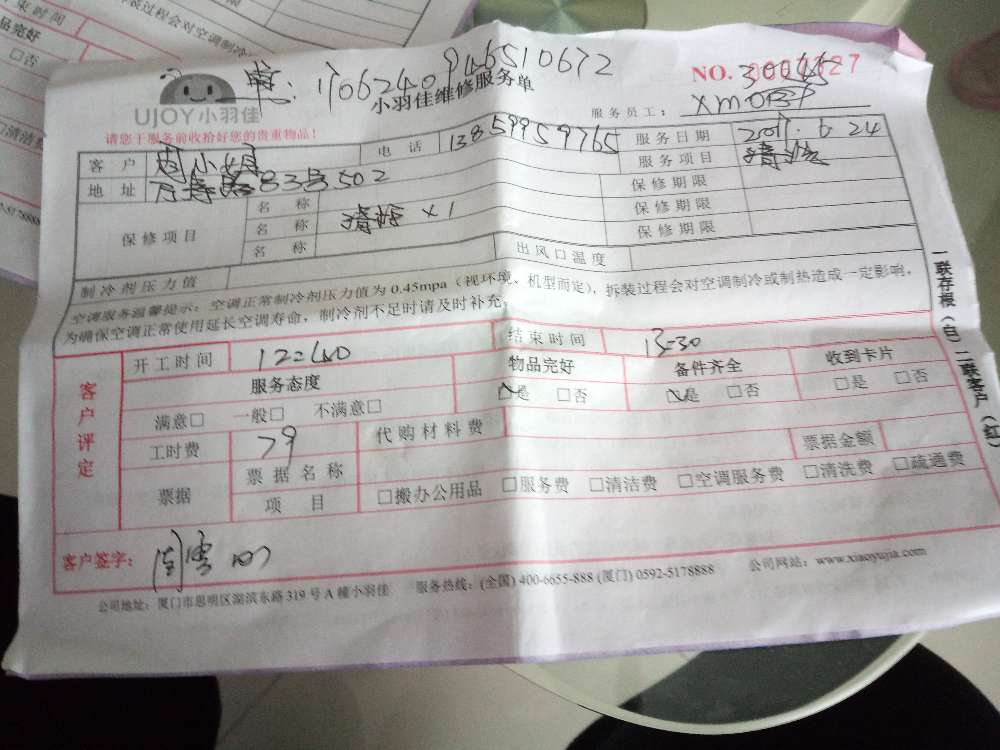 束时间
装过程会对空调制冷
品完好
保修期限
□否
单: 170624094651067 2
NO.
30245
UJOY小羽佳
小羽佳维修服务单
服务员工:
请您于服务前收拾好您的贵重物品!
客 户 周小姐 电 话 13859959765 服务日期 2017.6.24
地 址 万寿路83号502 服务项目 清洗
保修项目 名 称 保修期限
名 称 清洗 x1 保修期限
名 称 保修期限
制冷剂压力值 出风口温度
空调服务温馨提示: 空调正常制冷剂压力值为 0.45mpa (视环境、机型而定), 拆装过程会对空调制冷或制热造成一定影响,
为确保空调正常使用延长空调寿命, 制冷剂不足时请及时补充。
客户评定
开工时间 12=40 结束时间 13=30
服务态度 物品完好 备件齐全 收到卡片
满意□ 一般□ 不满意□ □是 □否 □是 □否 □是 □否
工时费 79 代购材料费 票据金额
票据 票据名称
项 目 □搬办公用品 □服务费 □清洁费 □空调服务费 □清洗费 □疏通费
客户签字: 周雪
公司地址: 厦门市思明区湖滨东路 319 号 A 幢小羽佳 服务热线: (全国) 400-6655-888 (厦门) 0592-5178888 公司网站: www.xiaoyujia.com
一联存根(白) 二联客户(红)